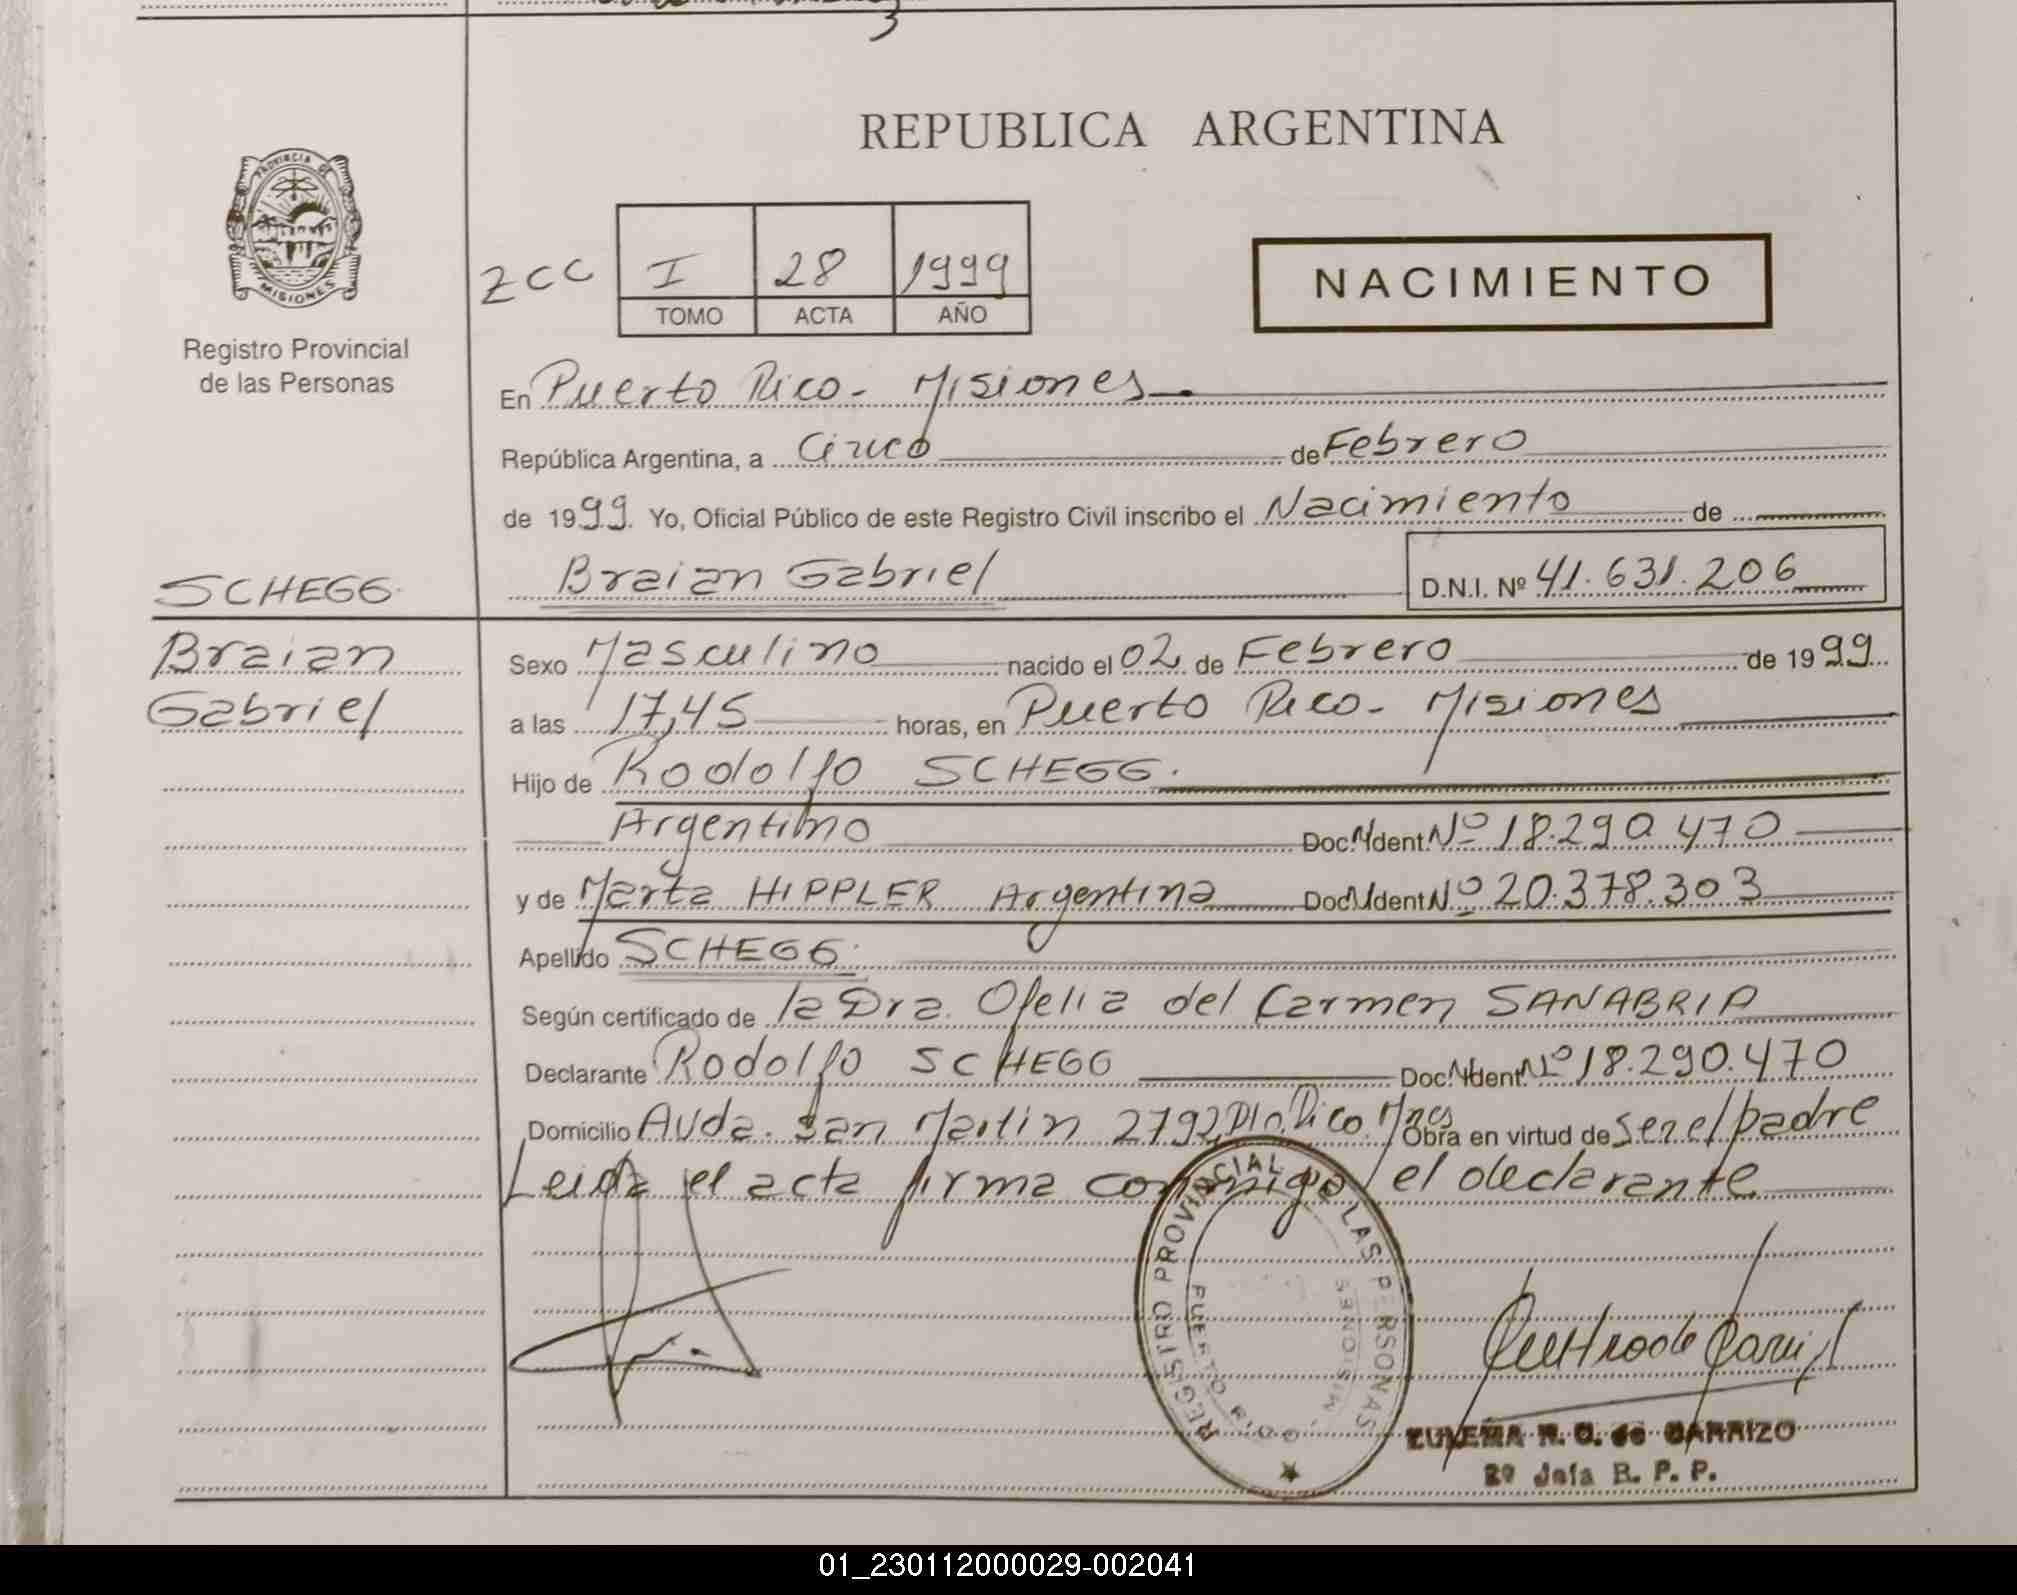 REPUBLICA ARGENTINA
PROVINCIA DE
MISIONES
Registro Provincial
de las Personas
ZCC
I 28 1999
TOMO ACTA AÑO
NACIMIENTO
En Puerto Rico - Misiones
República Argentina, a Cinco de Febrero
de 1999 Yo, Oficial Público de este Registro Civil inscribo el Nacimiento de
Braian Gabriel D.N.I. Nº 41.631.206
SCHEGG
Braian
Gabriel
Sexo Masculino nacido el 02 de Febrero de 1999
a las 17,45 horas, en Puerto Rico - Misiones
Hijo de Rodolfo SCHEGG.
Argentino Doc. Ident Nº 18.290.470
y de Marta HIPPLER Argentina Doc. Ident Nº 20.378.303
Apellido SCHEGG
Según certificado de la Dra. Ofelia del Carmen SANABRIA
Declarante Rodolfo SCHEGG Doc. Ident. Nº 18.290.470
Domicilio Avda. San Martin 2792 Pto. Rico Mnes Obra en virtud de ser el padre
Leida el acta firma conmigo el declarante
REGISTRO PROVINCIAL DE LAS PERSONAS
PUERTO RICO MISIONES
ZULEMA R. O. de CARRIZO
2º Jefa R. P. P.
01_230112000029-002041